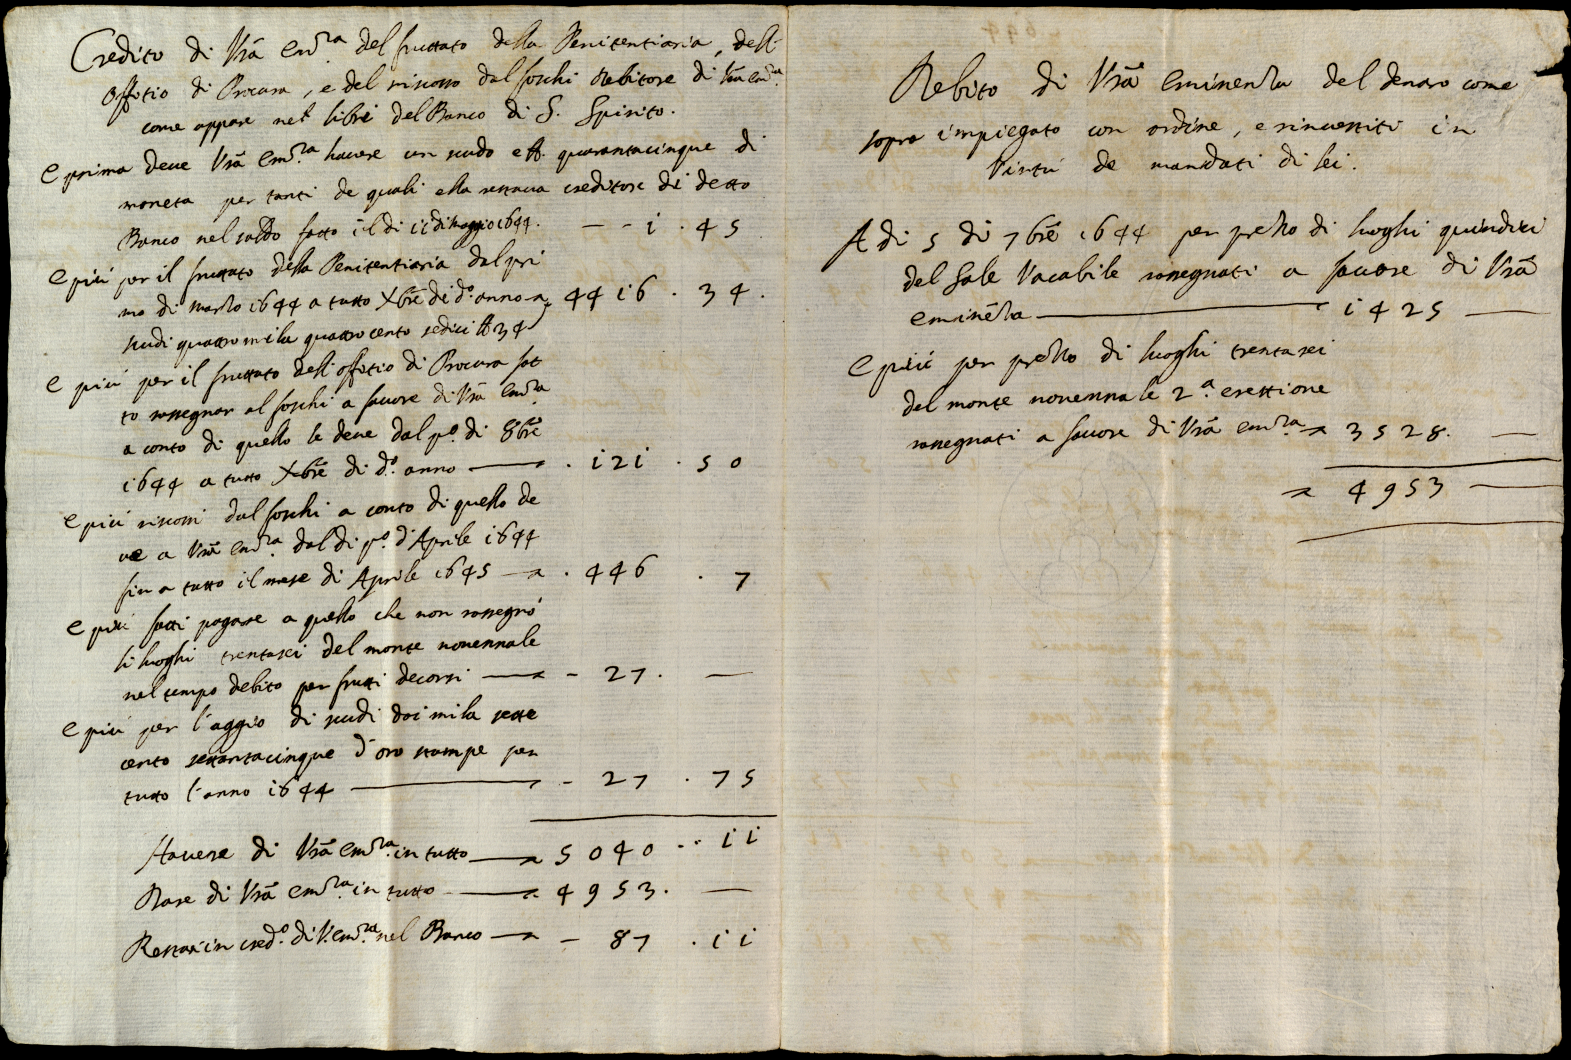 Credito di Vrã Em.za del fruttato della Penitentiaria, dell'
Offitio di Procura, e del riscosso dal foschi debitore di Vrã em.za
come appare nel libri del Banco di S. Spirito.
E prima deve Vrã Em.za havere un scudo e b. quarantacinque di
moneta per tanti de quali ella restava creditore di detto
Banco nel saldo fatto il di ii di Maggio 1644. – – i . 45
E più per il fruttato della Penitentiaria dal pri
mo di Marzo 1644 a tutto Xbrē di d.º anno 4416 . 34 .
scudi quattromila quattrocento sedici b 34
E più per il fruttato dell'offitio di Procura fat
to rassegnar al foschi a favore di Vrã Em.za
a conto di quello le deve dal p.º di 8brē
1644 a tutto Xbrē di d.º anno — . 121 . 50
E più riscossi dal foschi a conto di quello de
ve a Vrã em.za dal di p.º d'Aprile 1644
fin a tutto il mese di Aprile 1645 — . 446 . 7
E più fatti pagare a quello che non rassegnò
li luoghi trentasei del monte novennale
nel tempo debito per frutti decorsi — – 27 . —
E più per l'aggio di scudi doi mila sette
cento settantacinque d'oro stampe per
tutto l'anno 1644 — – 27 . 75
Havere di Vrã em.za in tutto — 5040 . . ii
Dare di Vrã em.za in tutto — 4953 . —
Restari in cred.º di V. em.za nel Banco — – 87 . ii
Debito di Vrã Eminenza del denaro come
sopra impiegato con ordine, e rinvestiti in
Virtù de mandati di lei.
A di 5 di 7brē 1644 per prezzo di luoghi quindici
del Sale Vacabile rassegnati a favore di Vrã
eminēza — 1425 —
E più per prezzo di luoghi trentasei
del monte novennale 2.ª erettione
rassegnati a favore di Vrã em.za 3528. —
4953 —